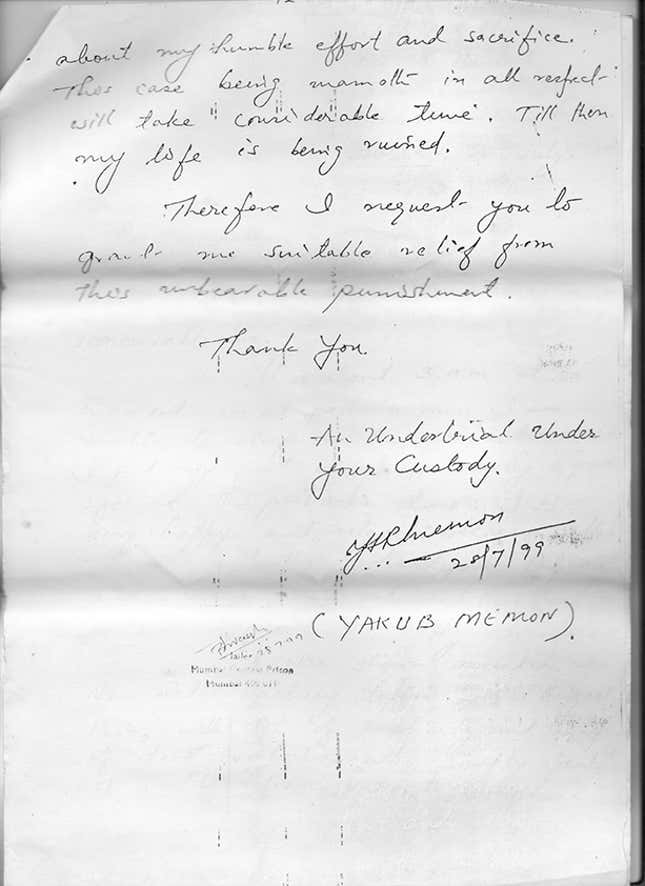 12
about my humble effort and sacrifice.
This case being mamoth in all respect
will take considerable time. Till then
my life is being ruined.
Therefore I request you to
grant me suitable relief from
this unbearable punishment.
Thank You.
An Undertrial Under
Your Custody.
28/7/99
(YAKUB MEMON).
Mumbai Prison
Mumbai